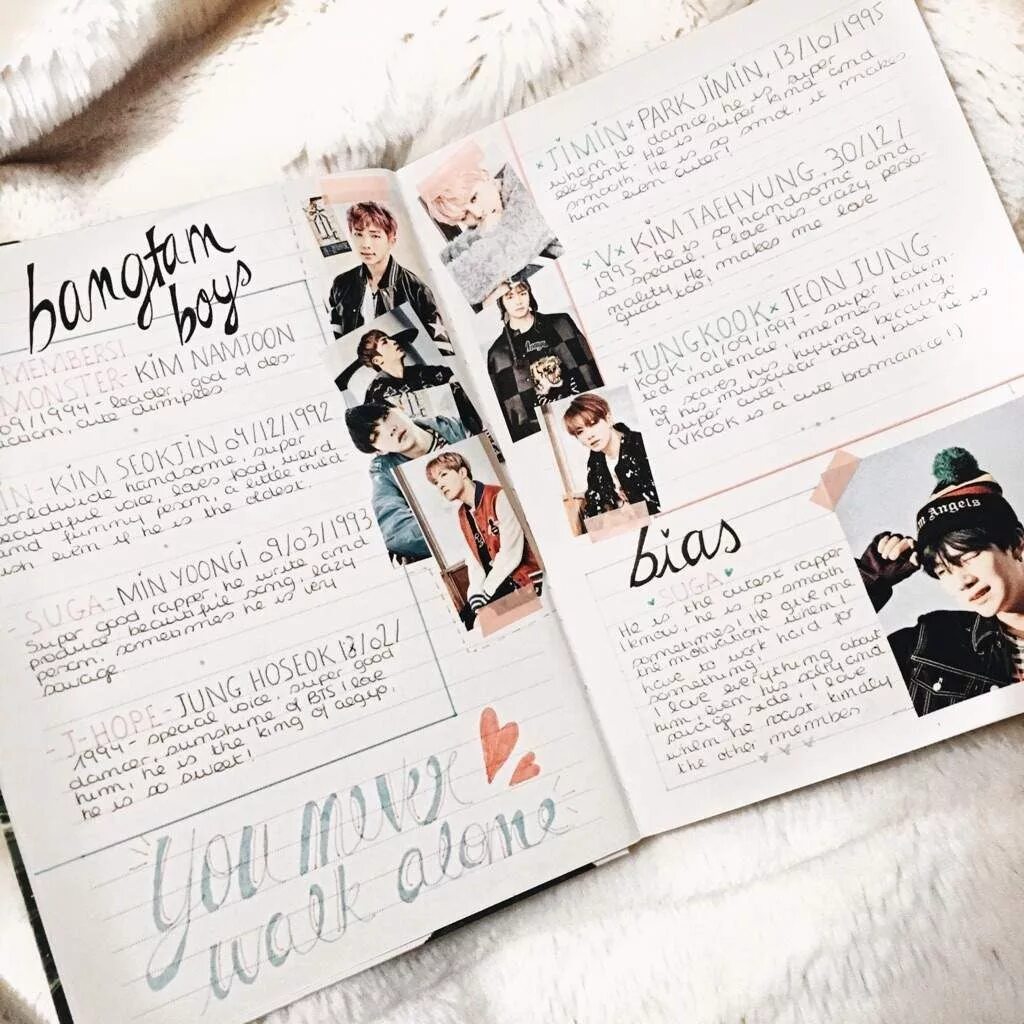 bangtan
boys
MEMBERS!
MONSTER- KIM NAMJOON
09/1994- leader, god of des-
cute dimples
IN- KIM SEOKJIN 04/12/1992
worldwide handsome, super
beautiful voice, loves food, weird
and funny person, a little child-
ish even if he is the oldest.
- SUGA- MIN YOONGI 09/03/1993
Super good rapper, he write and
produce beautiful song, lazy
person, sometimes he is very
savage
- J-HOPE- JUNG HOSEOK 18/02/
1994- special voice, super good
dancer, sunshine of BTS i love
him, he is the king of aegyo,
he is so sweet!
You never
walk alone
×JIMIN× PARK JIMIN, 13/10/1995
when he dance, he is super
elegant. He is super kind and
smooth. He is so smol, it makes
him even cuter!
×V× KIM TAEHYUNG, 30/12/
1995- he is so handsome and
so special, i love his crazy perso-
nality. He makes me love
gucci too!
×JUNGKOOK× JEON JUNG
KOOK, 01/09/1997- super talen-
ted maknae, memes king,
he scares his hyung because
of his musclar body, but he is
super cute!
(VKOOK is a cute bromance!)
bias
SUGA
He is the cutest rapper
I know, he is so smooth
sometimes! He give me
the motivation when I
have to work hard for
something.
I love everything about
him, even his salty and
savage side, I love
when he roast kindly
the other membes
m Angels